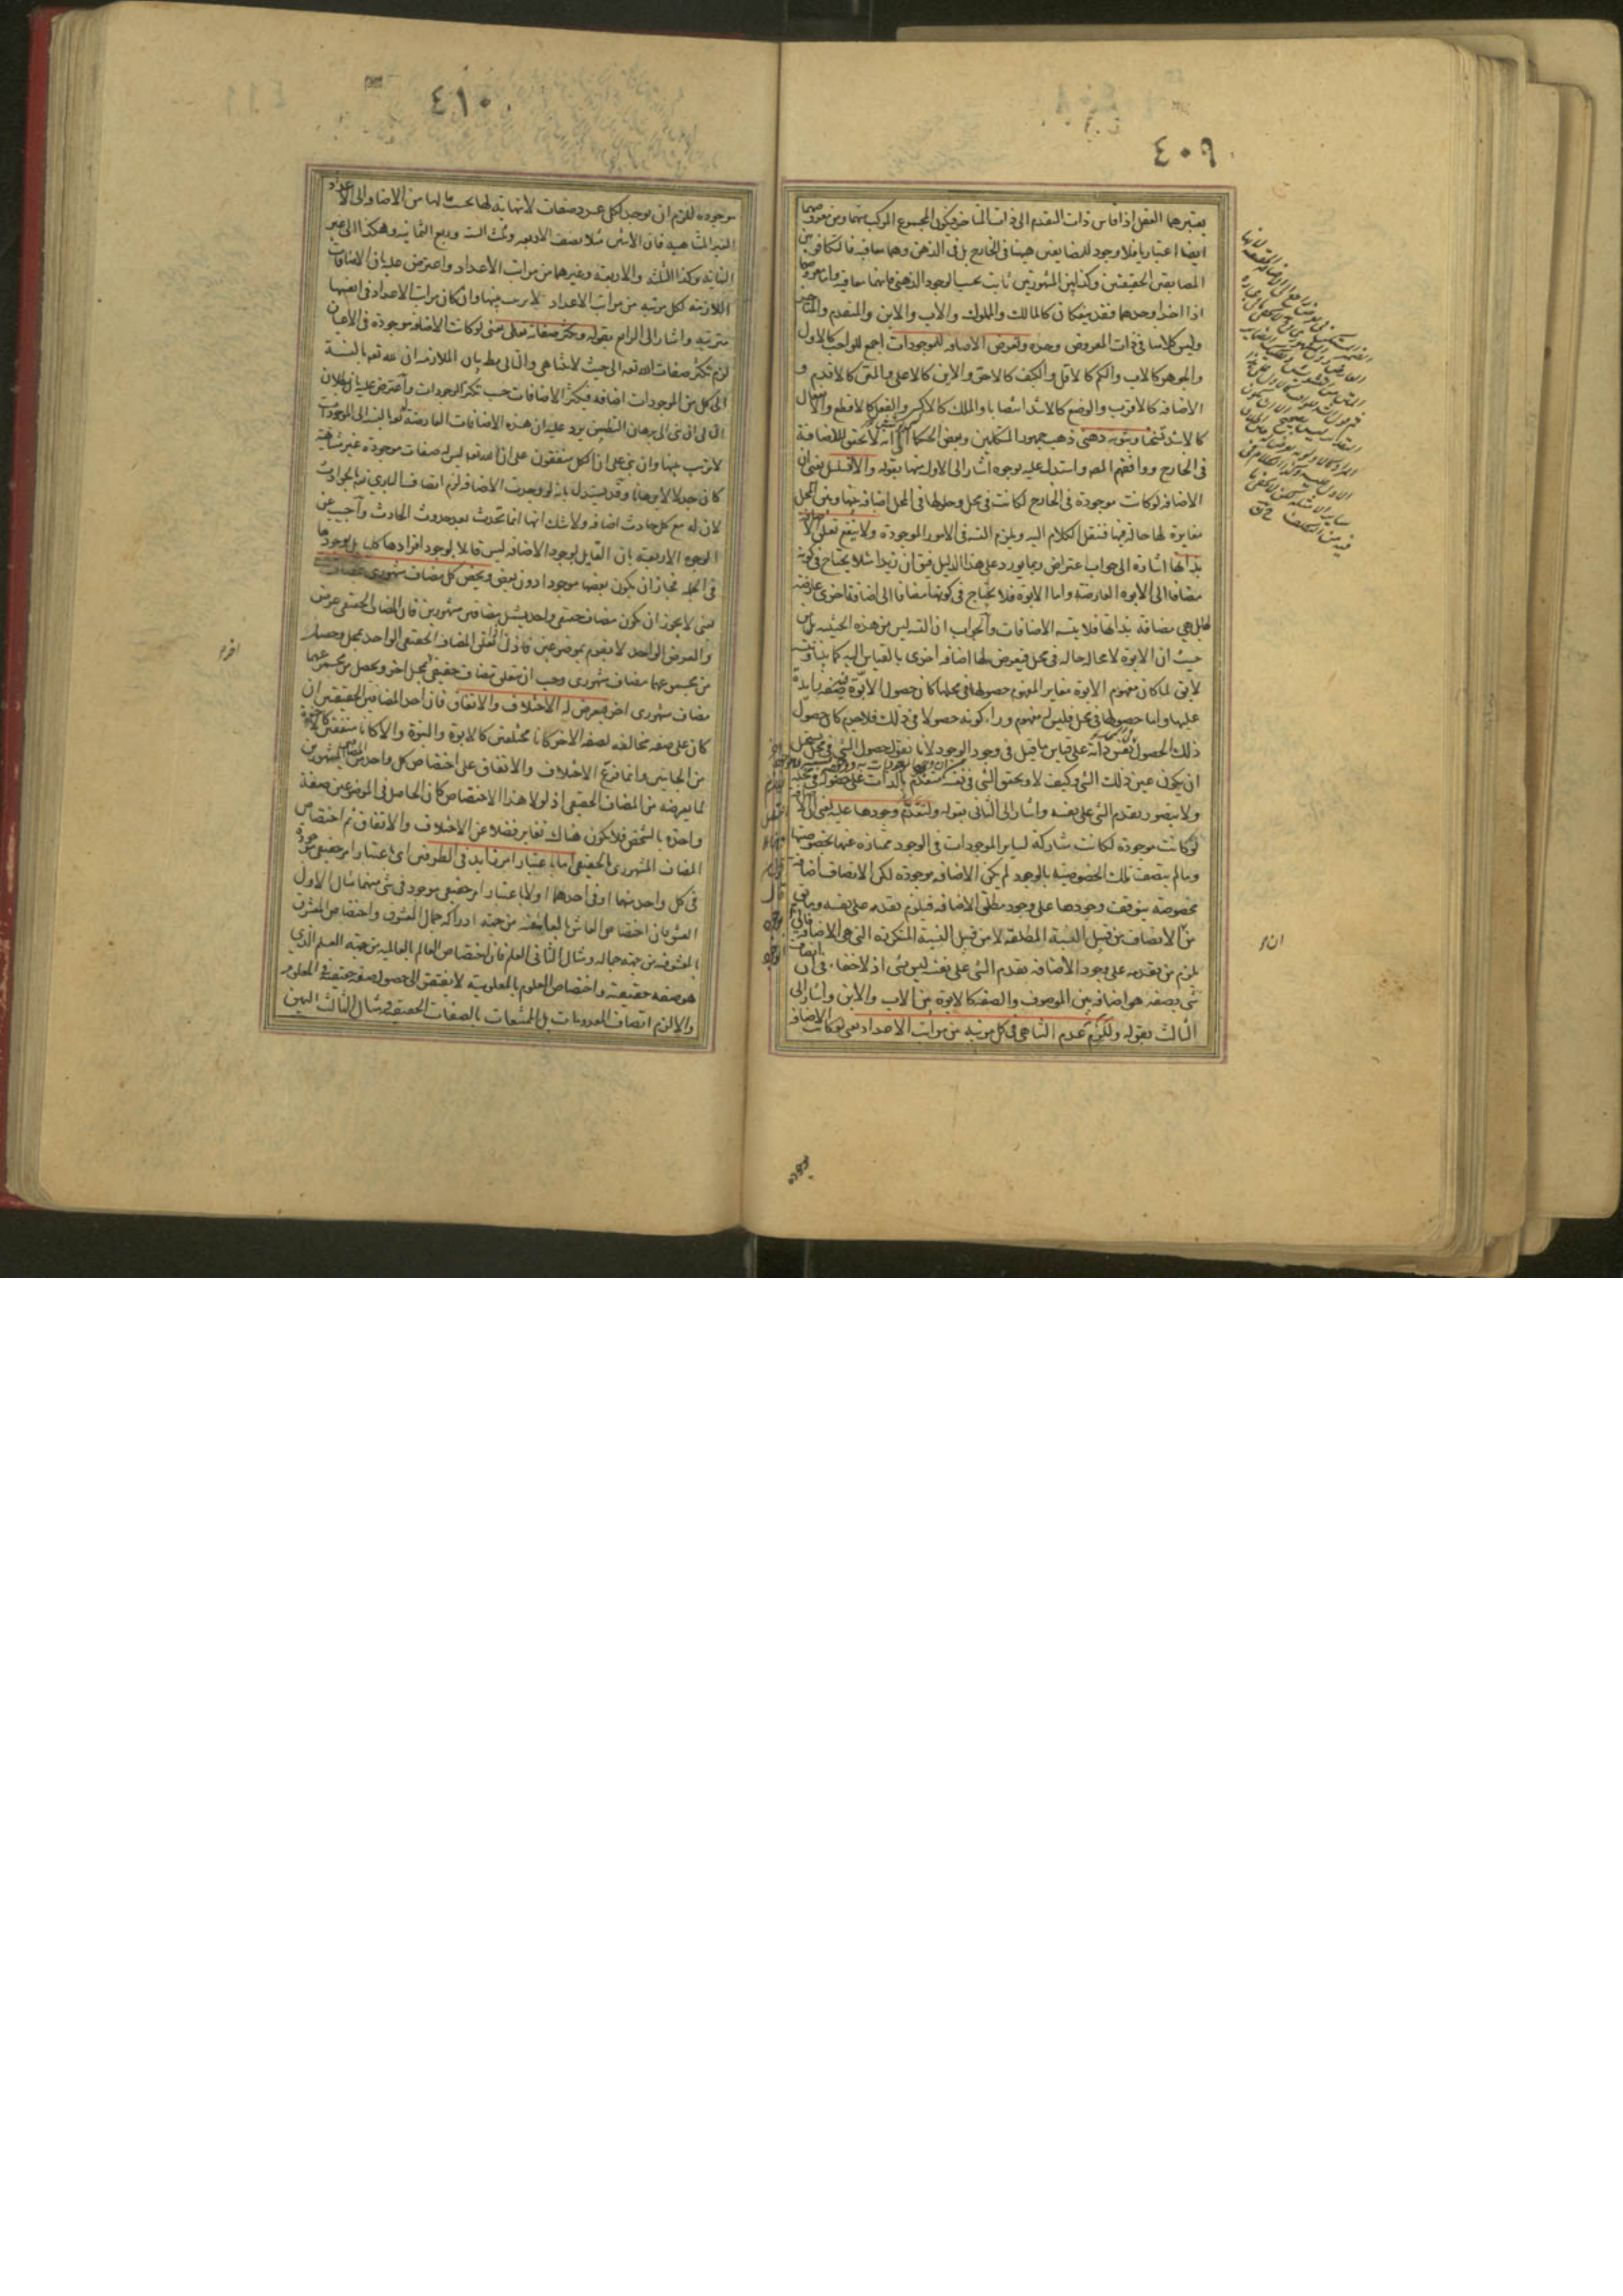 ٤٠٩
يعتبرهما العقل اذا قاس ذات المتقدم الى ذات المتاخر فيكون المجموع المركب منهما ومن معروضهما
ايضا اعتباريا فلا وجود للمضايفين ههنا فى الخارج بل فى الذهن وهما معا فيه فالتكافؤ بين
المضايفين الحقيقيين وكذا بين المشهوريين ثابت بحسب الوجود الذهنى فانهما معا فيه واما معروضاهما
اذا اخذا وحدهما فقد ينفكان كالمالك والمملوك والاب والابن والمتقدم والمتاخر
وليس كلامنا فى ذات المعروض وحده وتعرض الاضافه للموجودات اجمع للواجب كالاول
والجوهر كالاب والكم كالاقل والكيف كالاحر والاين كالاعلى والمتى كالاقدم و
الاضافه كالاقرب والوضع كالاشد انتصابا والملك كالاكسى والفعل كالاقطع والانفعال
كالاشد تسخنا وثبوته ذهنى ذهب جمهور المتكلمين وبعض الحكماء الى انه لا تحقق للاضافة
فى الخارج ووافقهم المصـ واستدل عليه بوجوه اشار الى الاول منها بقوله والا تسلسل يعنى ان
الاضافه لو كانت موجودة فى الخارج لكانت فى محل وحلولها فى المحل اضافه بينها وبين المحل
مغايرة لها حالة فيها فننقل الكلام اليه ويلزم التسـ فى الامور الموجودة ولا ينفع تعلق الاضافه
بذاتها اشارة الى جواب اعتراض ربما يورد على هذا الدليل فيق ان زيدا مثلا يحتاج فى كونه
مضافا الى الابوه العارضة واما الابوة فلا يحتاج فى كونها مضافا الى اضافة اخرى عارضة
لها بل هى مضافة بذاتها فلا يتسـ الاضافات والجواب ان التسـ ليس من هذه الحيثيه بل من
حيث ان الابوة لا محاله حاله فى محل فيعرض لها اضافه اخرى بالقياس اليه كما بيناه
لا يق لما كان مفهوم الابوة مغاير المفهوم حصولها فى محلها كان حصول الابوة صفه زايدة
عليها واما حصولها فى محل فليس له مفهوم وراء كونه حصولا فى ذلك فلا جرم كان حصول
ذلك الحصول نفس ذاته على قياس ما قيل فى وجود الوجود لانا نقول حصول الشئ فى محل يستحيل
ان يكون عين ذلك الشئ وكيف لا وتحقق الشئ فى نفسه متقدم بالذات على حصوله فى محله
ولا يتصور تقدم الشئ على نفسه واشار الى الثانى بقوله ولتقدم وجودها عليه يعنى الاضافه
لو كانت موجودة لكانت مشاركة لساير الموجودات فى الوجود ممتازة عنها بخصوصيتها
وما لم يتصف تلك الخصوصية بالوجود لم يكن الاضافه موجودة لكن الاتصاف اضافة
مخصوصة يتوقف وجودها على وجود مطلق الاضافه فيلزم تقدمه على نفسه وما يق
من الاتصاف من قبيل النسبة المطلقة لا من قبيل النسبة المتكررة التى هى الاضافة
يلزم من تقدمه على وجود الاضافه تقدم الشئ على نفسه ليس بشئ اذ لا خفاء فى ان اتصاف
شئ بصفه هو اضافه بين الموصوف والصفه كالابوة بين الاب والابن واشار الى
الثالث بقوله وللزم عدم التناهى فى كل مرتبه من مراتب الاعداد يعنى لو كانت الاضافه
موجوده
٤١٠
موجوده للزم ان يوجد لكل عدد صفات لا نهاية لها بحسب ما لها من الاضافه الى الاعداد
الغير المتناهيه فان الاثنين مثلا نصف الاربعه وثلث الستة وربع الثمانية وهكذا الى غير
النهاية وكذا الثلثه والاربعة وغيرهما من مراتب الاعداد واعترض عليه بان الاضافات
اللازمة لكل مرتبه من مراتب الاعداد لا ترتب بينها وان كان مراتب الاعداد فى انفسها
مترتبة واشار الى الرابع بقوله وتكثر صفاته تعالى يعنى لو كانت الاضافه موجوده فى الاعيان
لزم تكثر صفات الله تعـ الى حيث لا يتناهى والتالى بط بيان الملازمه ان لله تعـ بالنسبة
الى كل من الموجودات اضافه فيتكثر الاضافات حسب تكثر الموجودات واعترض عليه بان بطلان
التالى ان بنى الى برهان التطبيق يرد عليه ان هذه الاضافات العارضة له تعـ بالنسبة الى الموجودات
لا ترتب بينها وان بنى على ان الكل متفقون على ان الله تعـ ليس له صفات موجودة غير متناهية
كان جدلا لا برهانا وقد يستدل بانه لو وجدت الاضافه لزم اتصاف البارى تعـ بالحوادث
لان له مع كل حادث اضافه ولا شك انها انما تحدث بعد حدوث الحادث واجيب عن
الوجوه الاربعه بان القايل بوجود الاضافه ليس قايلا بوجود افرادها كلها بل بوجودها
فى الجمله فجاز ان يكون بعضها موجودا دون بعض ويخص كل مضاف مشهورى بمضاف
يعنى لا يجوز ان يكون مضاف حقيقى واحد يشمل مضافين مشهوريين فان المضاف الحقيقى عرض
والعرض الواحد لا يقوم بموضوعين فاذن اذا تعلق المضاف الحقيقى الواحد بمحل وحصل
من مجموعهما مضاف مشهورى وجب ان يتعلق مضاف حقيقى بمحل اخر ويحصل من مجموعهما
مضاف مشهورى اخر فيعرض له الاختلاف والاتفاق فان احد المضافين الحقيقيين ان
كان على صفه مخالفه لصفه الاخر كانا مختلفين كالابوة والبنوة والا كانا متفقين كالاخوة
من الجانبين وانما فرع الاختلاف والاتفاق على اختصاص كل واحد من المضافين المشهورين
بما يعرضه من المضاف الحقيقى اذ لو لا هذا الاختصاص كان الحاصل فى الموضوعين صفة
واحدة بالشخص فلا يكون هناك تغاير فضلا عن الاختلاف والاتفاق ثم اختصاص
المضاف المشهورى بالحقيقى اما باعتبار امر زايد فى الطرفين اى باعتبار امر حقيقى موجود
فى كل واحد منهما او فى احدهما او لا باعتبار امر حقيقى موجود فى شئ منهما مثال الاول
العشق فان اختصاص العاشق بالعاشقيه من جهة ادراكه جمال المعشوق واختصاص المعشوق
بالمعشوقيه من جهة جماله ومثال الثانى العلم فان اختصاص العالم بالعالميه من جهة العلم الذى
هو صفه حقيقية واختصاص المعلوم بالمعلومية لا يفتقر الى حصول صفه حقيقية فى المعلوم
والا لزم اتصاف المعدومات بل الممتنعات بالصفات الحقيقيه ومثال الثالث اليمين